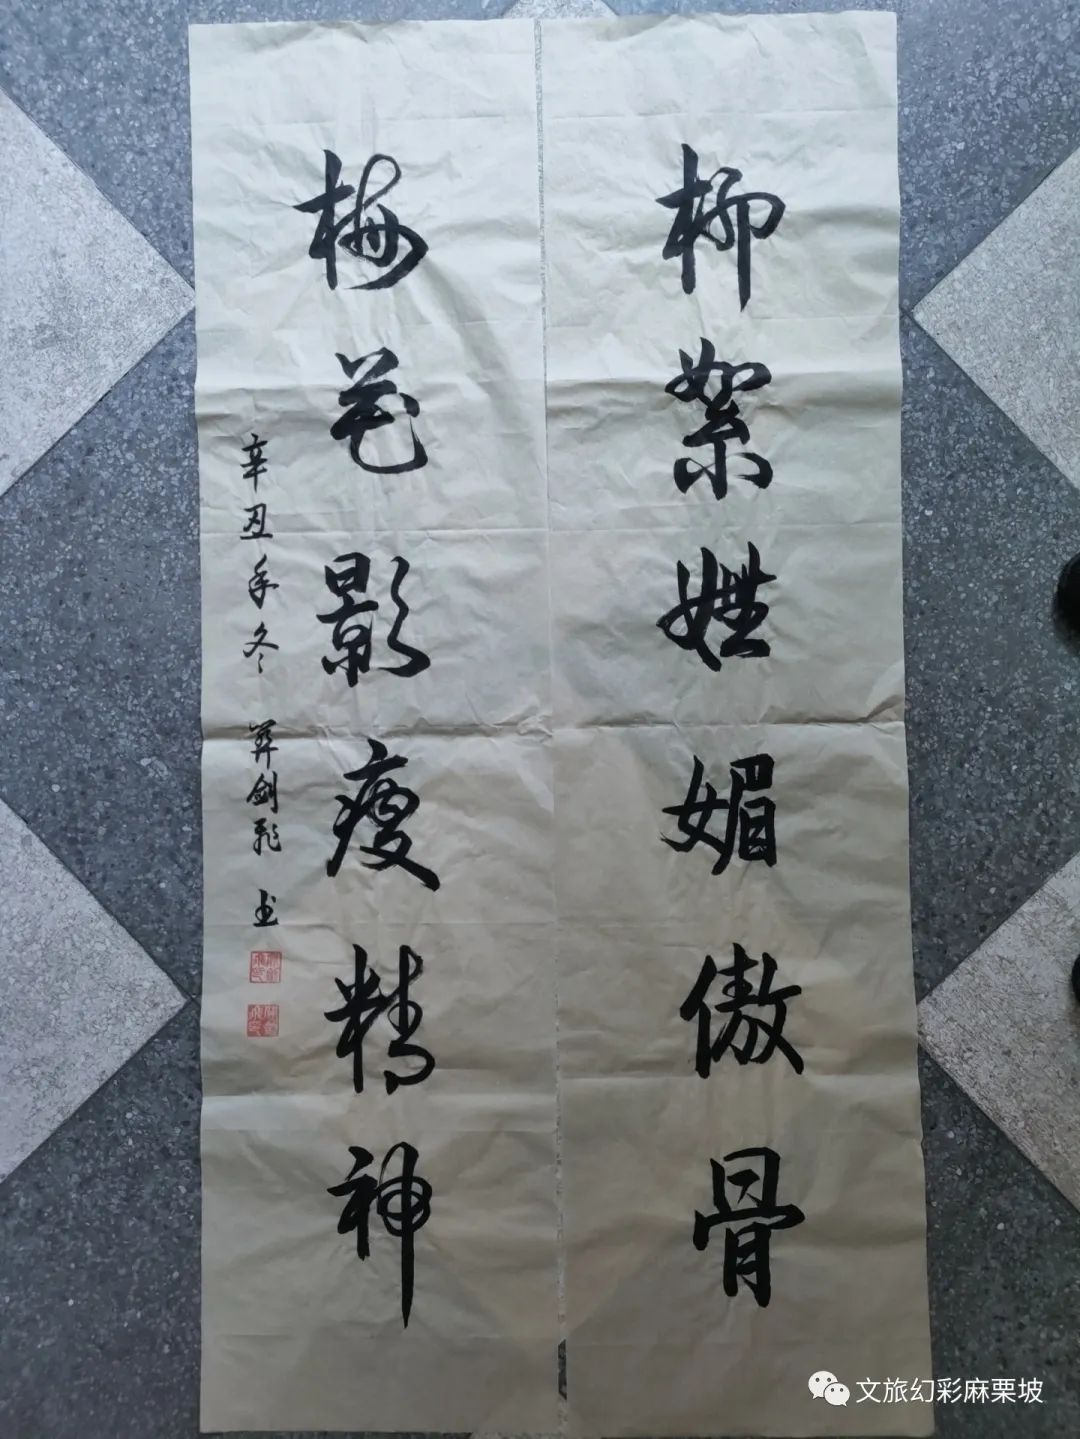 柳絮嫵媚傲骨
梅花影瘦精神
辛丑年冬 剑飛书
文旅幻彩麻栗坡